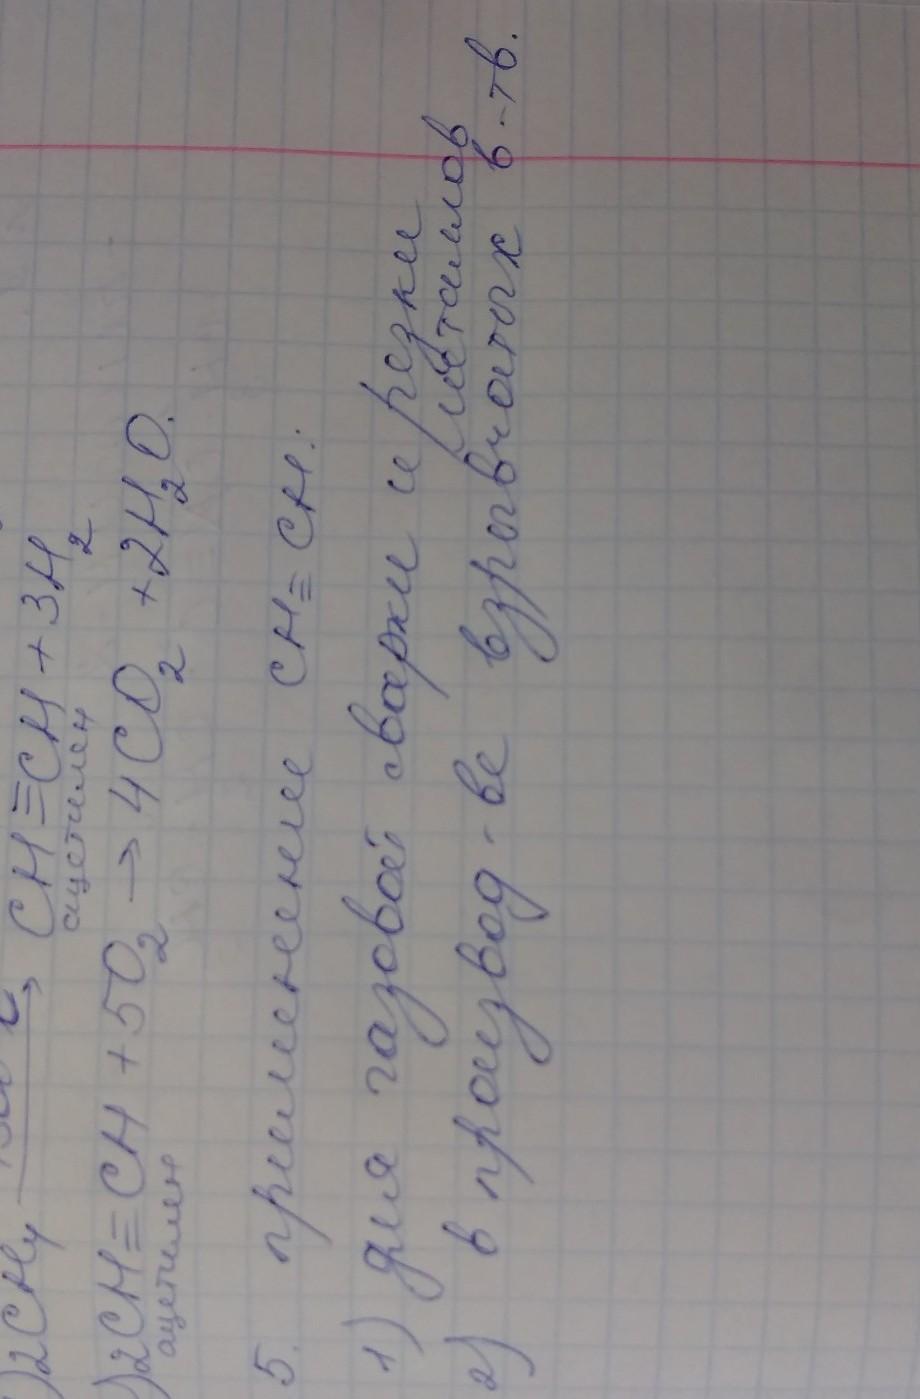 )2CH₄ → CH≡CH + 3H₂
ацетилен
)2CH≡CH + 5O₂ → 4CO₂ + 2H₂O.
ацетилен
5. применение CH≡CH:
1) для газовой сварки и резки
металлов
2) в производ-ве взрывчатых в-тв.